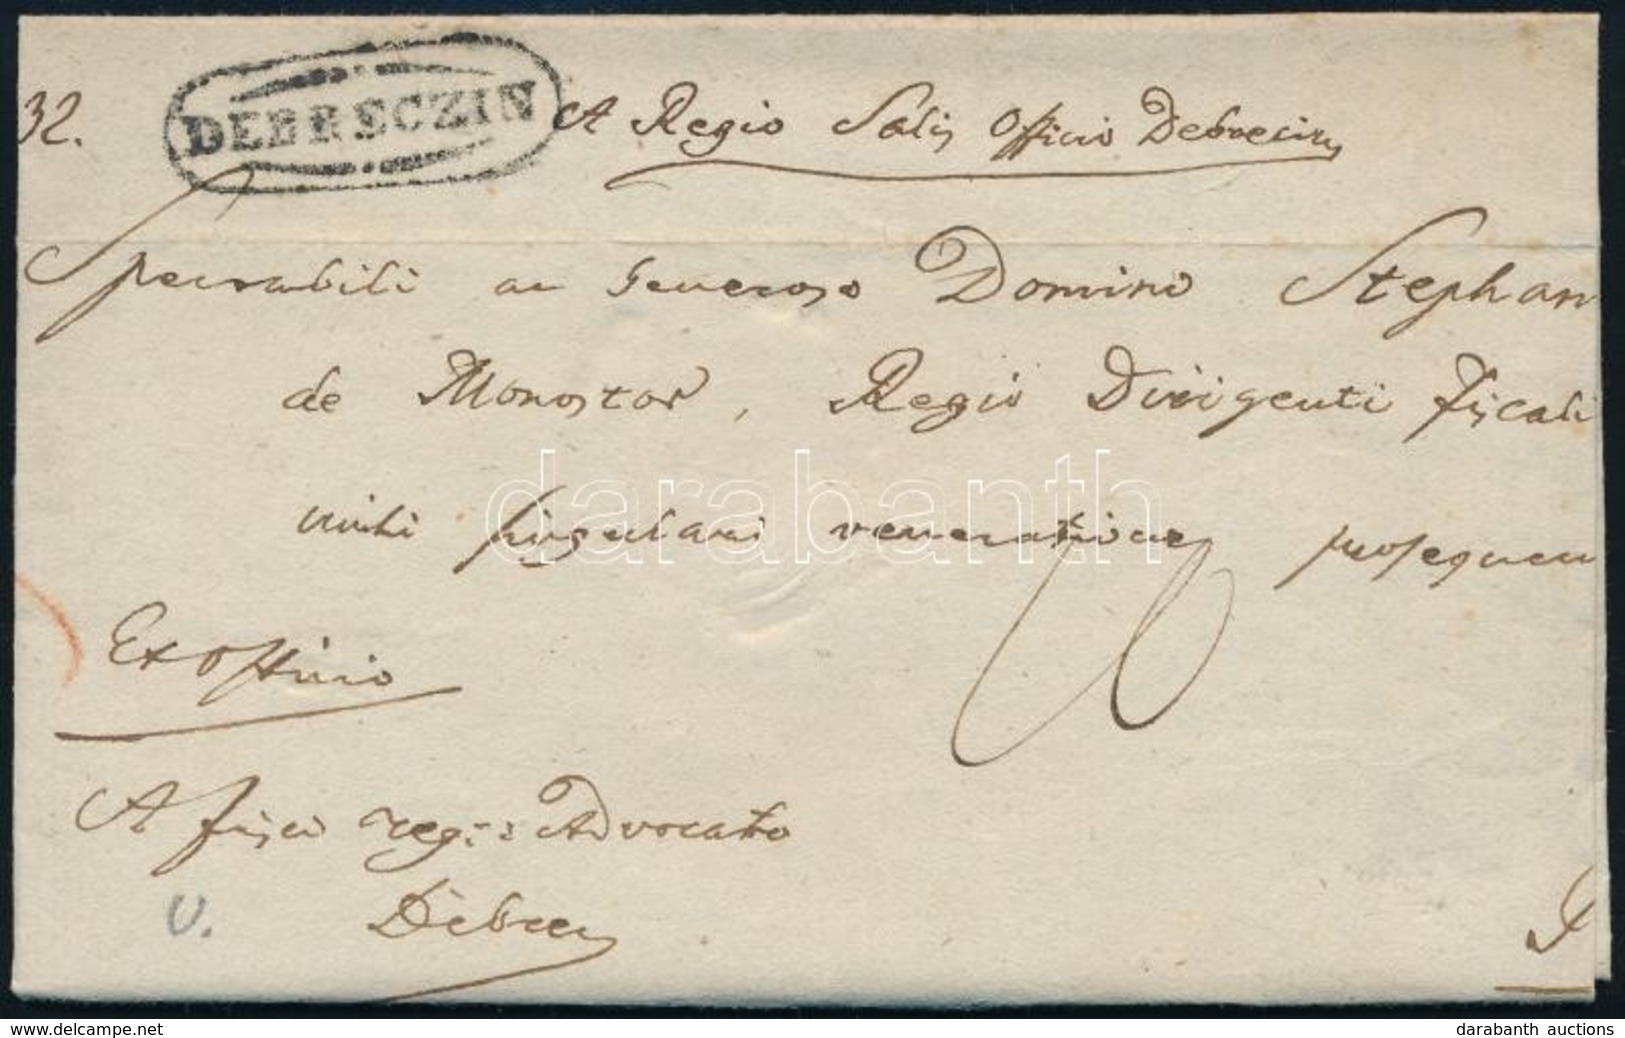 32.
DEBRECZIN
A Regio Salis Officio Debrecin
Spectabili ac Generoso Domino Stephan
de Monostor, Regio Dirigenti Fiscali
mihi singulari veneratione prosequen
Ex offinio
A fisci reg: Advocato
Debrecen
U.
darabanth
www.delcampe.net
darabanth auctions